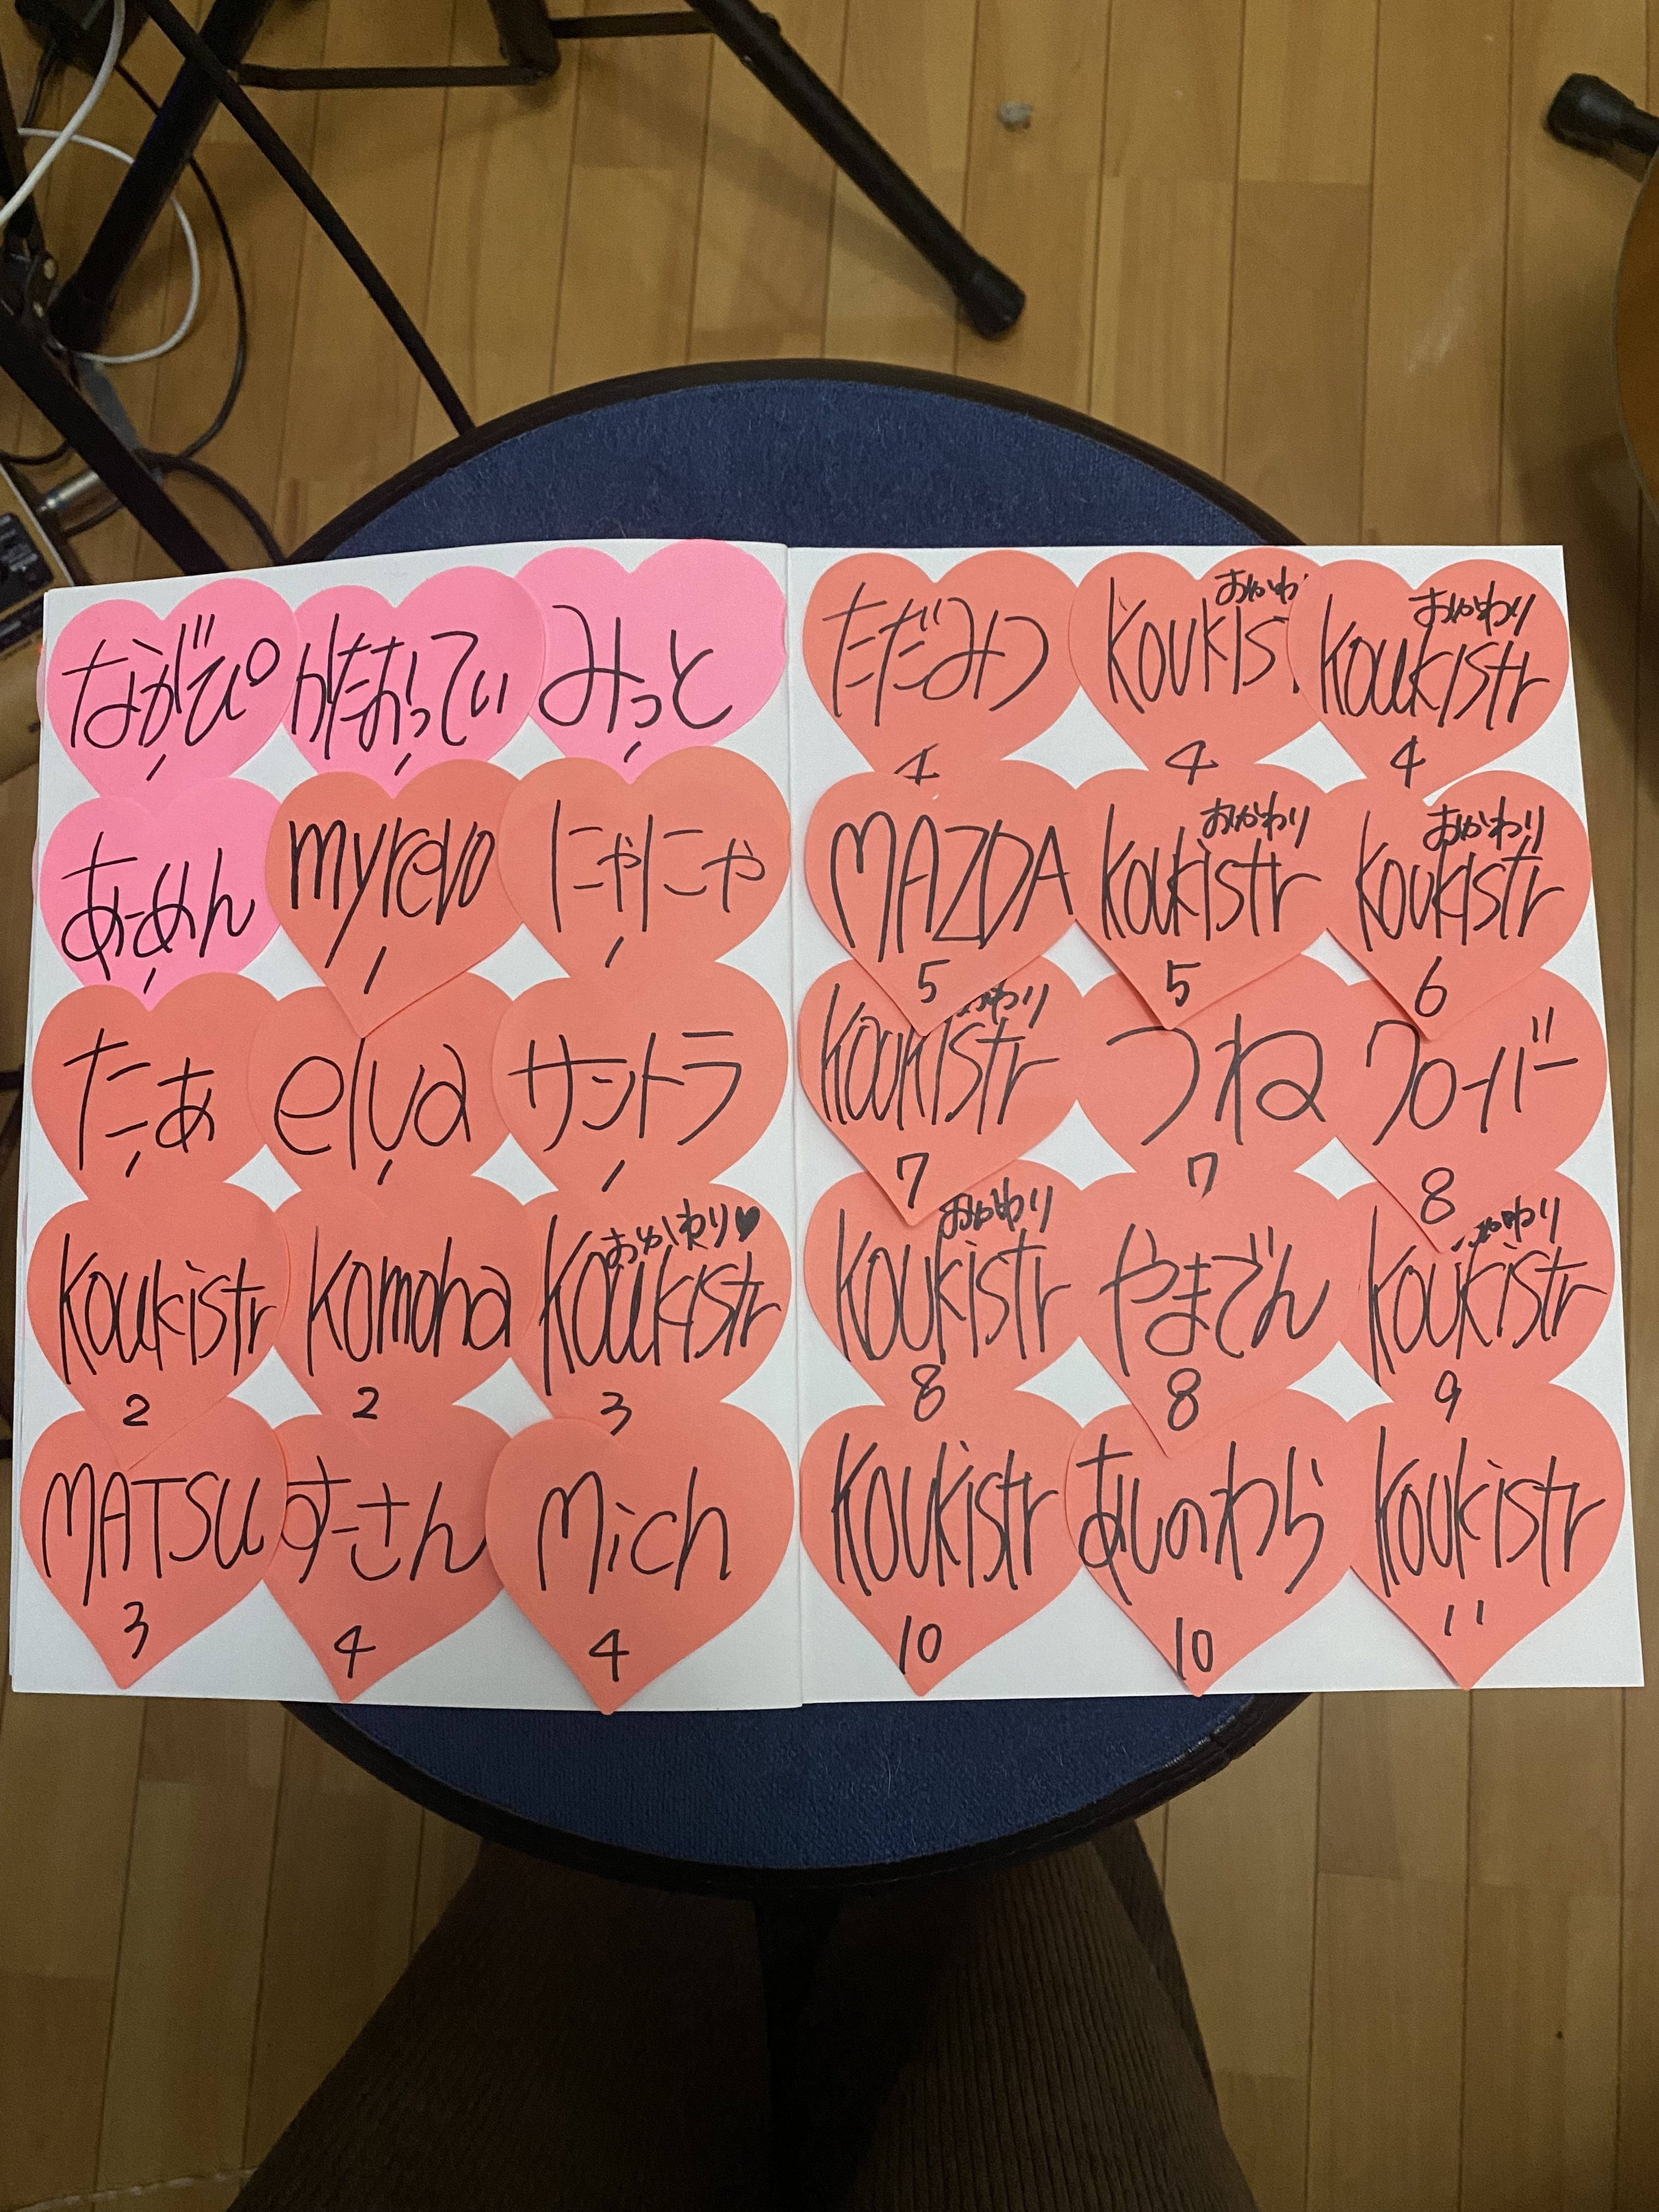 ながぴ
1
かたおかってぃ
1
みっと
1
あーめん
1
myrevo
1
にゃにゃ
1
たーあ
1
elua
1
サントラ
1
Koukistr
2
Komoha
2
おかわり♥
Koukistr
3
MATSU
3
すーさん
4
Mich
4
ただみつ
4
おかわ
Koukis
4
おかわり
Koukistr
4
MAZDA
5
おかわり
Koukistr
5
おかわり
Koukistr
6
かわり
Koukistr
7
つね
7
クローバー
8
おかわり
Koukistr
8
やまでん
8
かわり
Koukistr
9
Koukistr
10
あしのわら
10
Koukistr
11